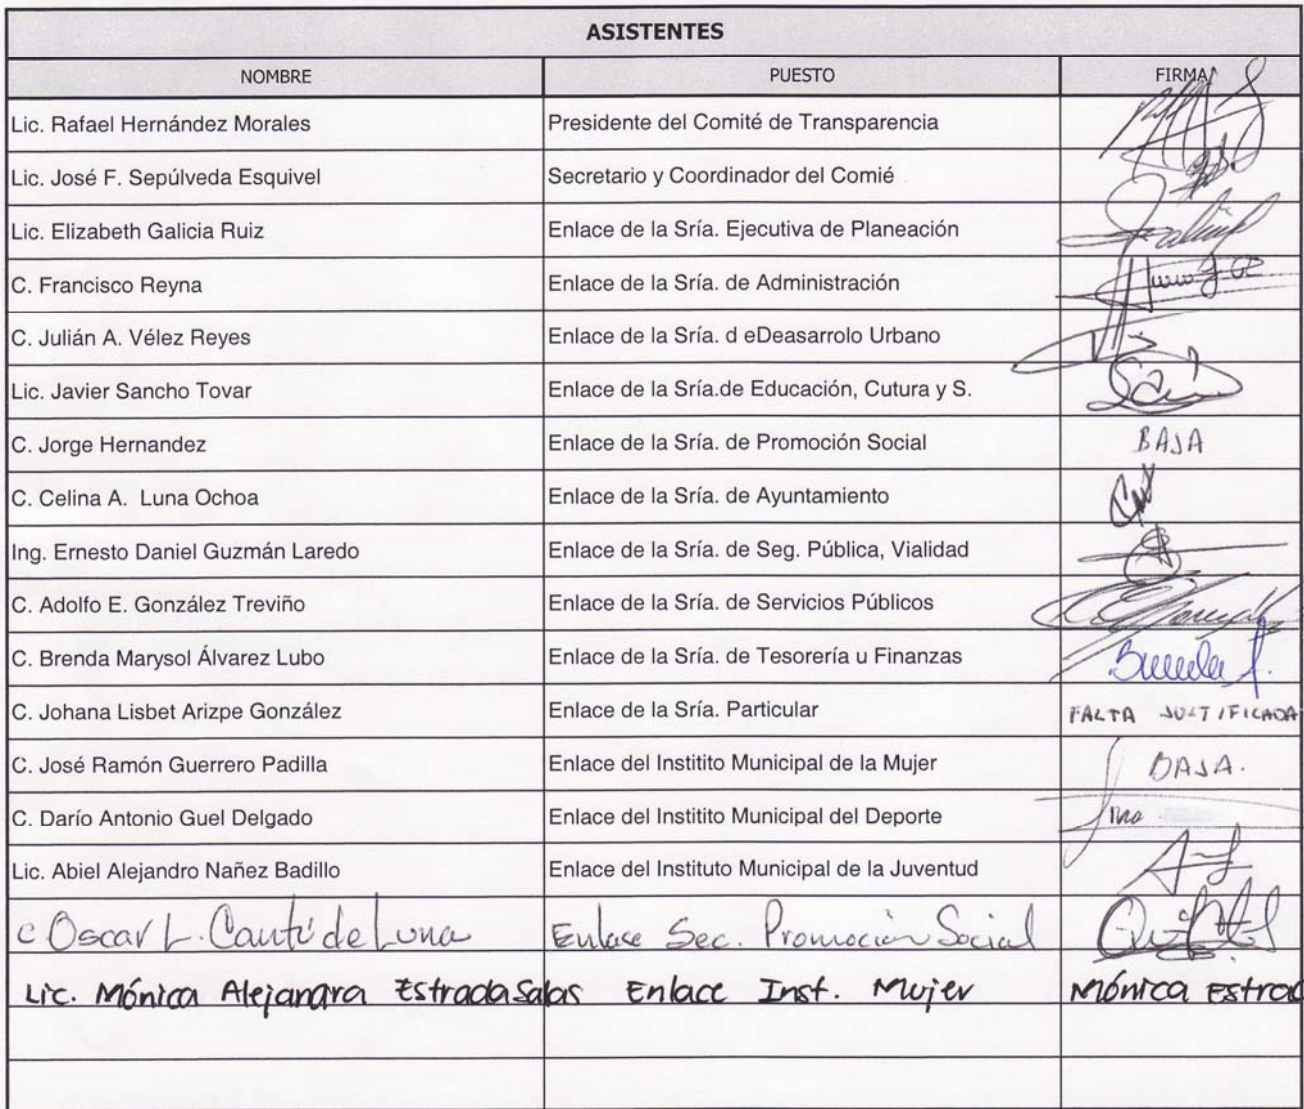 ASISTENTES
NOMBRE PUESTO FIRMA
Lic. Rafael Hernández Morales Presidente del Comité de Transparencia
Lic. José F. Sepúlveda Esquivel Secretario y Coordinador del Comié
Lic. Elizabeth Galicia Ruiz Enlace de la Sría. Ejecutiva de Planeación
C. Francisco Reyna Enlace de la Sría. de Administración
C. Julián A. Vélez Reyes Enlace de la Sría. d eDeasarrolo Urbano
Lic. Javier Sancho Tovar Enlace de la Sría.de Educación, Cutura y S.
C. Jorge Hernandez Enlace de la Sría. de Promoción Social BAJA
C. Celina A. Luna Ochoa Enlace de la Sría. de Ayuntamiento
Ing. Ernesto Daniel Guzmán Laredo Enlace de la Sría. de Seg. Pública, Vialidad
C. Adolfo E. González Treviño Enlace de la Sría. de Servicios Públicos
C. Brenda Marysol Álvarez Lubo Enlace de la Sría. de Tesorería u Finanzas
C. Johana Lisbet Arizpe González Enlace de la Sría. Particular FALTA JUSTIFICADA
C. José Ramón Guerrero Padilla Enlace del Institito Municipal de la Mujer BAJA.
C. Darío Antonio Guel Delgado Enlace del Institito Municipal del Deporte
Lic. Abiel Alejandro Nañez Badillo Enlace del Instituto Municipal de la Juventud
C Oscar L. Cantú de Luna Enlace Sec. Promoción Social
Lic. Mónica Alejandra Estrada Salas Enlace Inst. Mujer Mónica Estrad